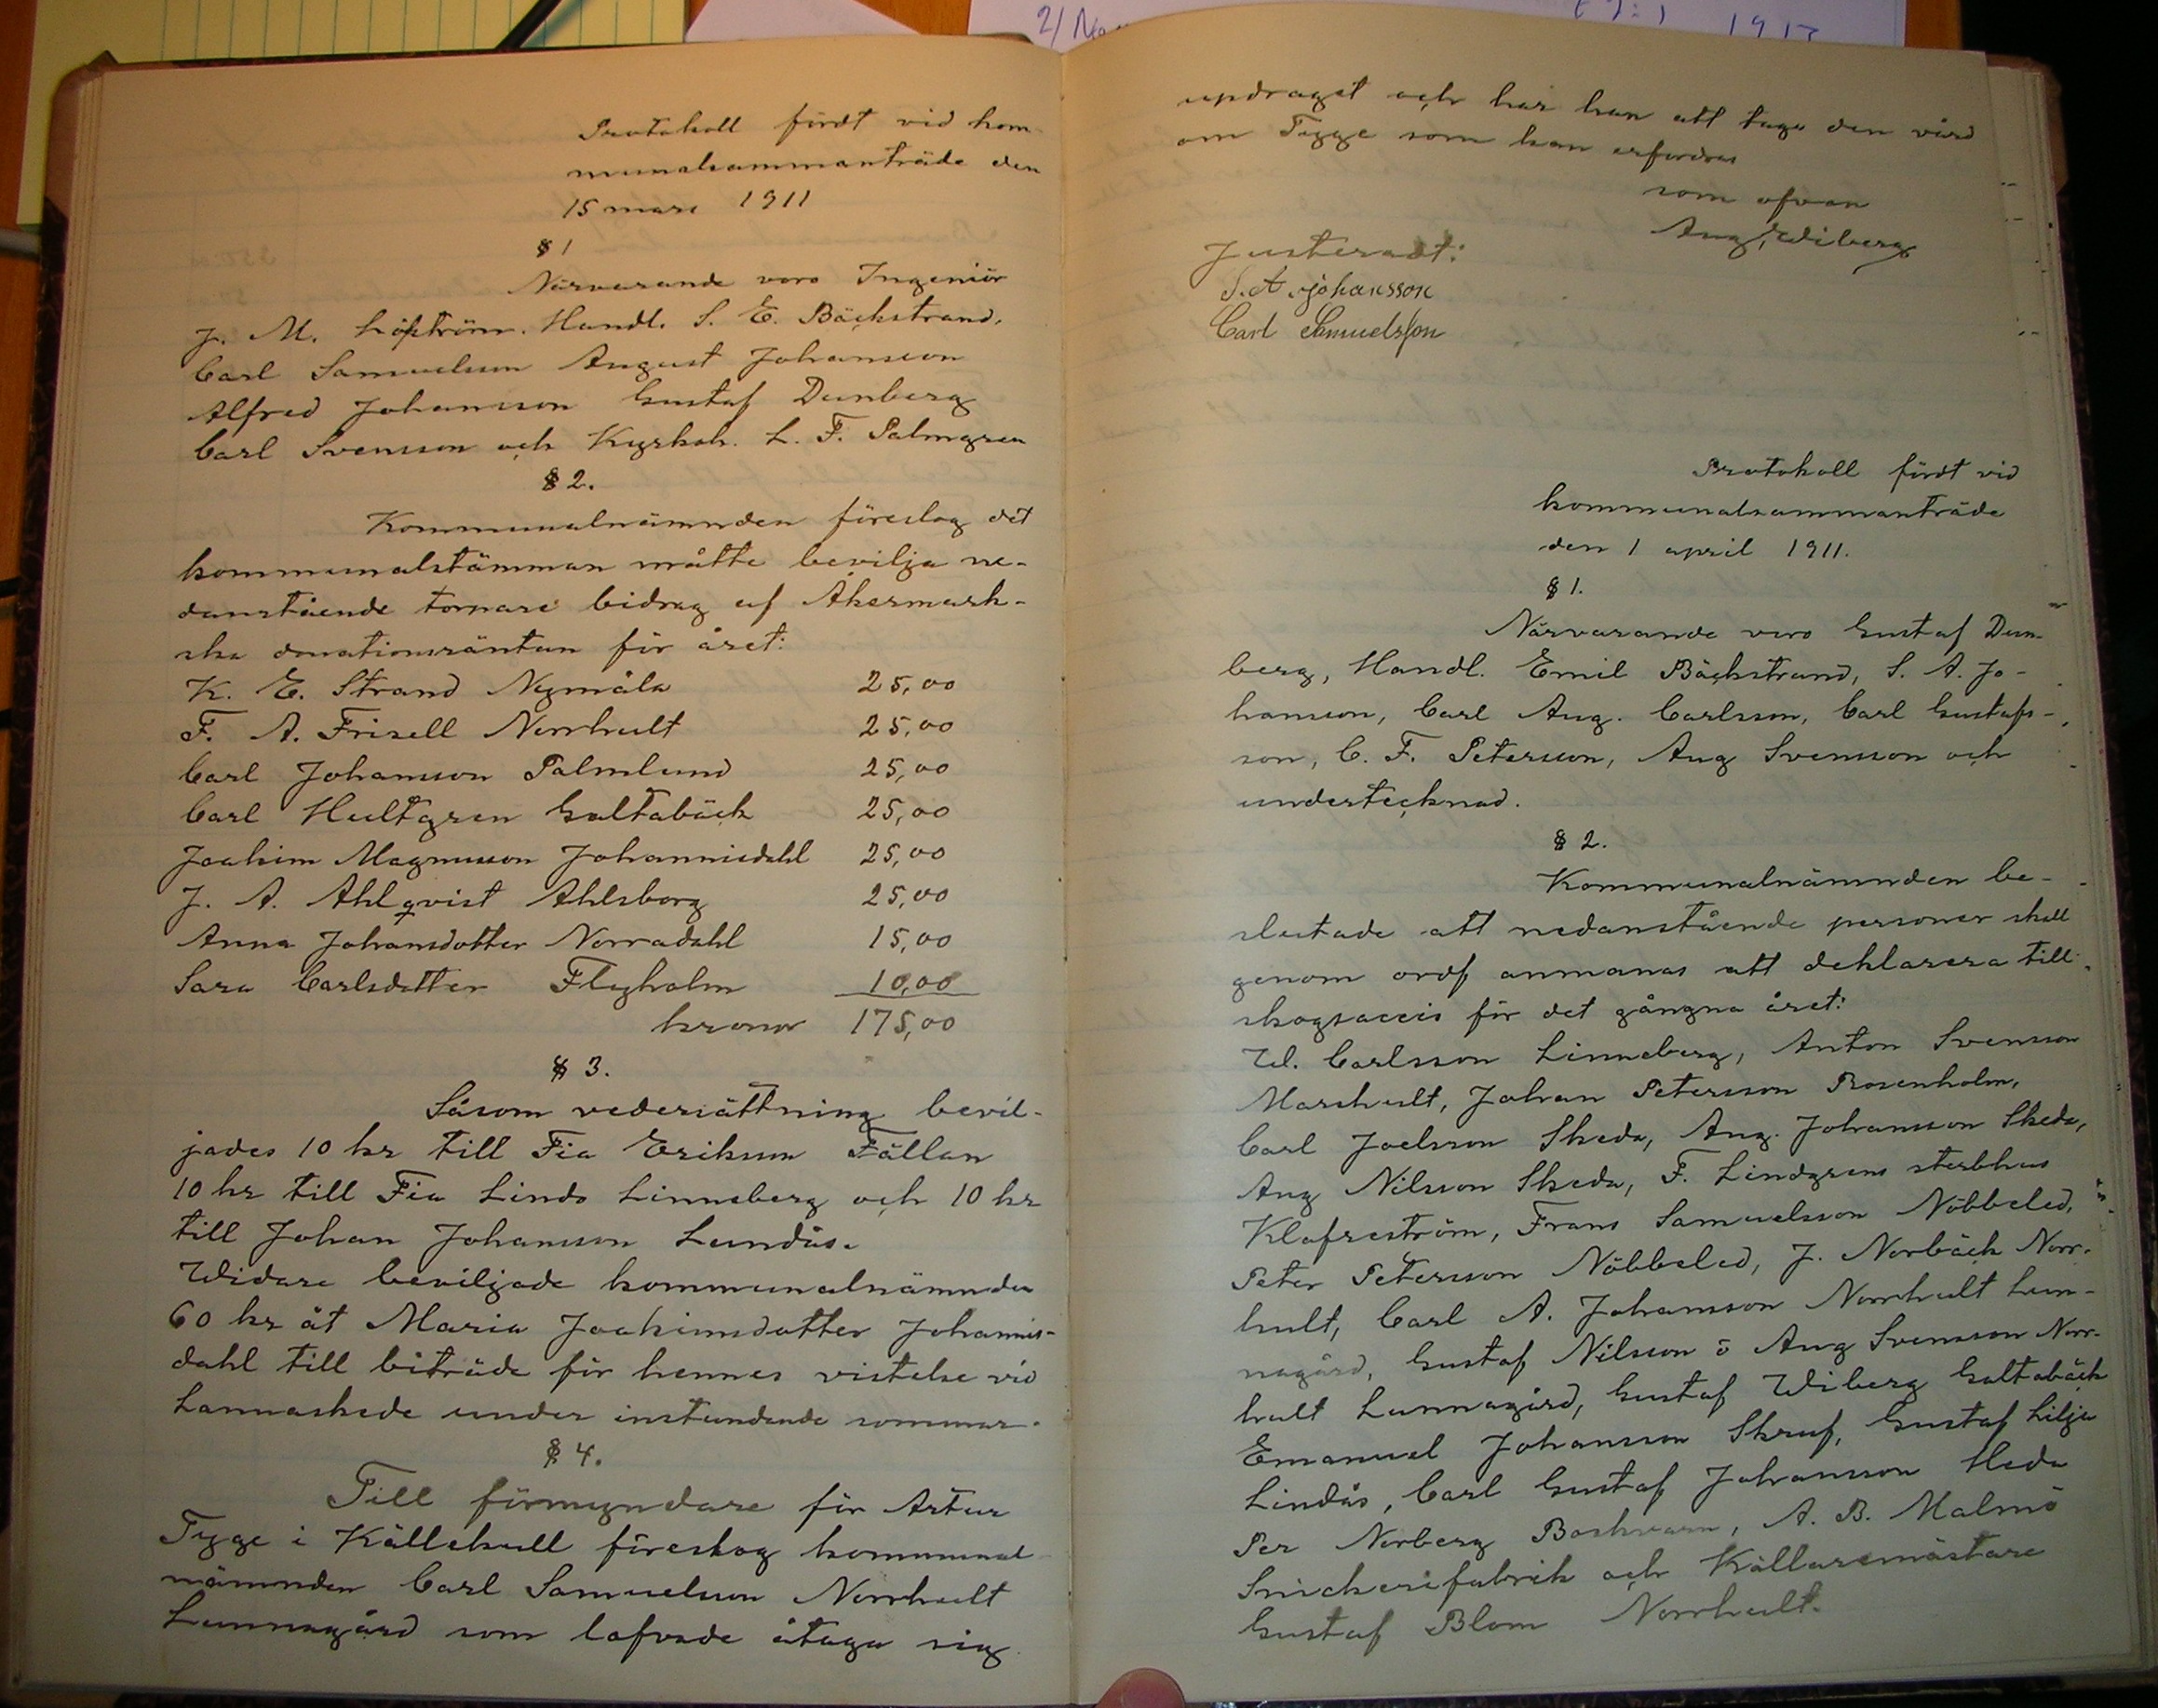 2/
1917
Protokoll fördt vid kom-
munalsammanträde den
15 mars 1911
§ 1
Närvarande voro Ingeniör
J. M. Löfström. Handl. S. E. Bäckstrand,
Carl Samuelsson August Johansson
Alfred Johansson Gustaf Dunberg
Carl Svensson och Kyrkoh. L. F. Palmgren
§ 2.
Kommunalnämnden föreslog det
kommunalstämman måtte bevilja ne-
danstående tornare bidrag af Åkermark-
ska donationsräntan för året:
K. E. Strand Nymåla 25,00
F. A. Frisell Norrhult 25,00
Carl Johansson Palmlund 25,00
Carl Hultgren Galtabäck 25,00
Joakim Magnusson Johannisdahl 25,00
J. A. Ahlqvist Ahlsborg 25,00
Anna Johansdotter Norradahl 15,00
Sara Carlsdotter Flygholm 10,00
kronor 175,00
§ 3.
Såsom vedersättning bevil-
jades 10 kr till Fia Eriksson Fällan
10 kr till Fia Linds Linneberg och 10 kr
till Johan Johansson Lundås.
Widare beviljade kommunalnämnden
60 kr åt Maria Joakimsdotter Johannis-
dahl till biträde för hennes vistelse vid
Lannaskede under instundande sommar.
§ 4.
Till förmyndare för Artur
Tygge i Källehult föreslog kommunal
nämnden Carl Samuelsson Norrhult
Lunnagård som lofvade åtaga sig
updraget och har han att taga den vård
om Tygge som kan erfordras
som ofvan
Aug, Wiberg
Justeradt:
S. A. Johansson
Carl Samuelsson
Protokoll fördt vid
kommunalsammanträde
den 1 april 1911.
§ 1.
Närvarande voro Gustaf Dun-
berg, Handl. Emil Bäckstrand, S. A. Jo-
hansson, Carl Aug. Carlsson, Carl Gustafs-
son, C. F. Petersson, Aug Svensson och
undertecknad.
§ 2.
Kommunalnämnden be-
slutade att nedanstående personer skall
genom ordf anmanas att deklarera till
skogsaccis för det gångna året:
W. Carlsson Linneberg, Anton Svensson
Marshult, Johan Petersson Rosenholm,
Carl Joelsson Skeda, Aug. Johansson Skeda,
Aug Nilsson Skeda, F. Lindgrens sterbhus
Klafreström, Frans Samuelsson Nöbbeled,
Peter Petersson Nöbbeled, J. Norbäck Norr-
hult, Carl A. Johansson Norrhult Lun-
nagård, Gustaf Nilsson o Aug Svensson Norr-
hult Lunnagård, Gustaf Wiberg Galtabäck
Emanuel Johansson Skruf, Gustaf Lilja
Lindås, Carl Gustaf Johansson Heda
Per Norberg Boskvarn, A. B. Malmö
Snickerifabrik och Källaremästare
Gustaf Blom Norrhult.